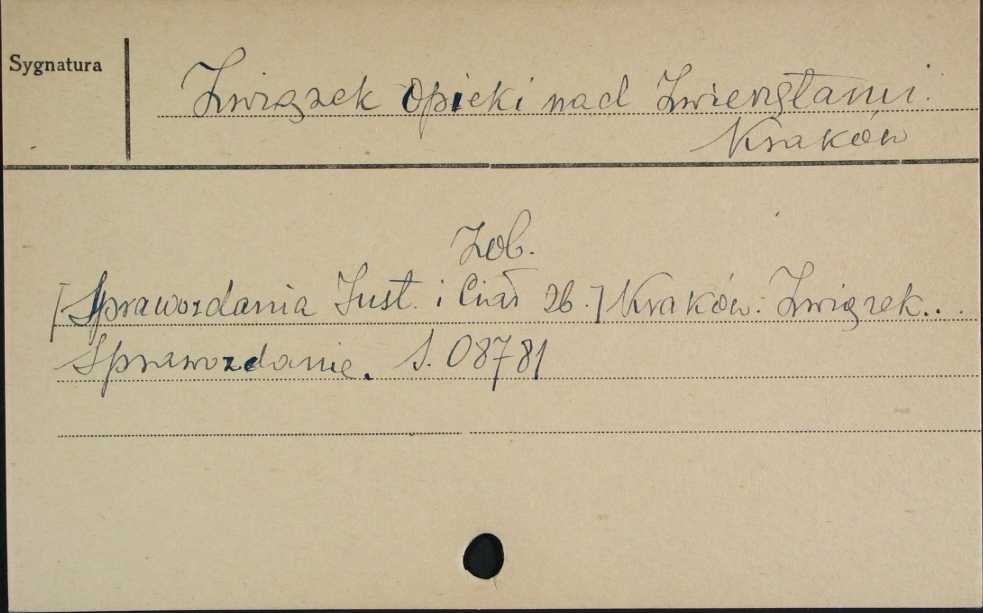 Sygnatura
Związek Opieki nad Zwierzętami.
Kraków
Zob.
[Sprawozdania Inst. i Ciał 26.] Kraków: Związek...
Sprawozdanie. S. 08781